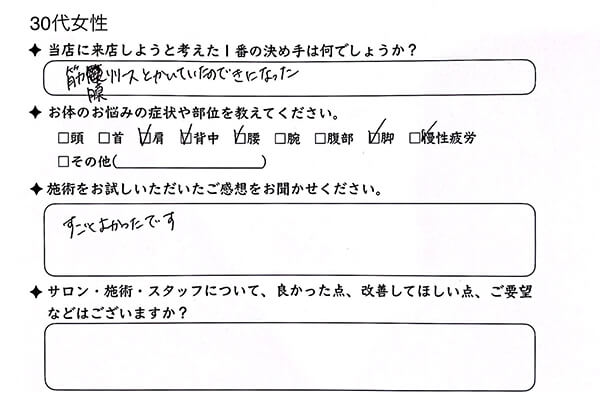 30代女性
✦ 当店に来店しようと考えた1番の決め手は何でしょうか？
筋膜リリースとかいていたのできになった
✦ お体のお悩みの症状や部位を教えてください。
□頭 □首 ☑肩 ☑背中 ☑腰 □腕 □腹部 ☑脚 ☑慢性疲労
□その他( )
✦ 施術をお試しいただいたご感想をお聞かせください。
すごくよかったです
✦ サロン・施術・スタッフについて、良かった点、改善してほしい点、ご要望
などはございますか？